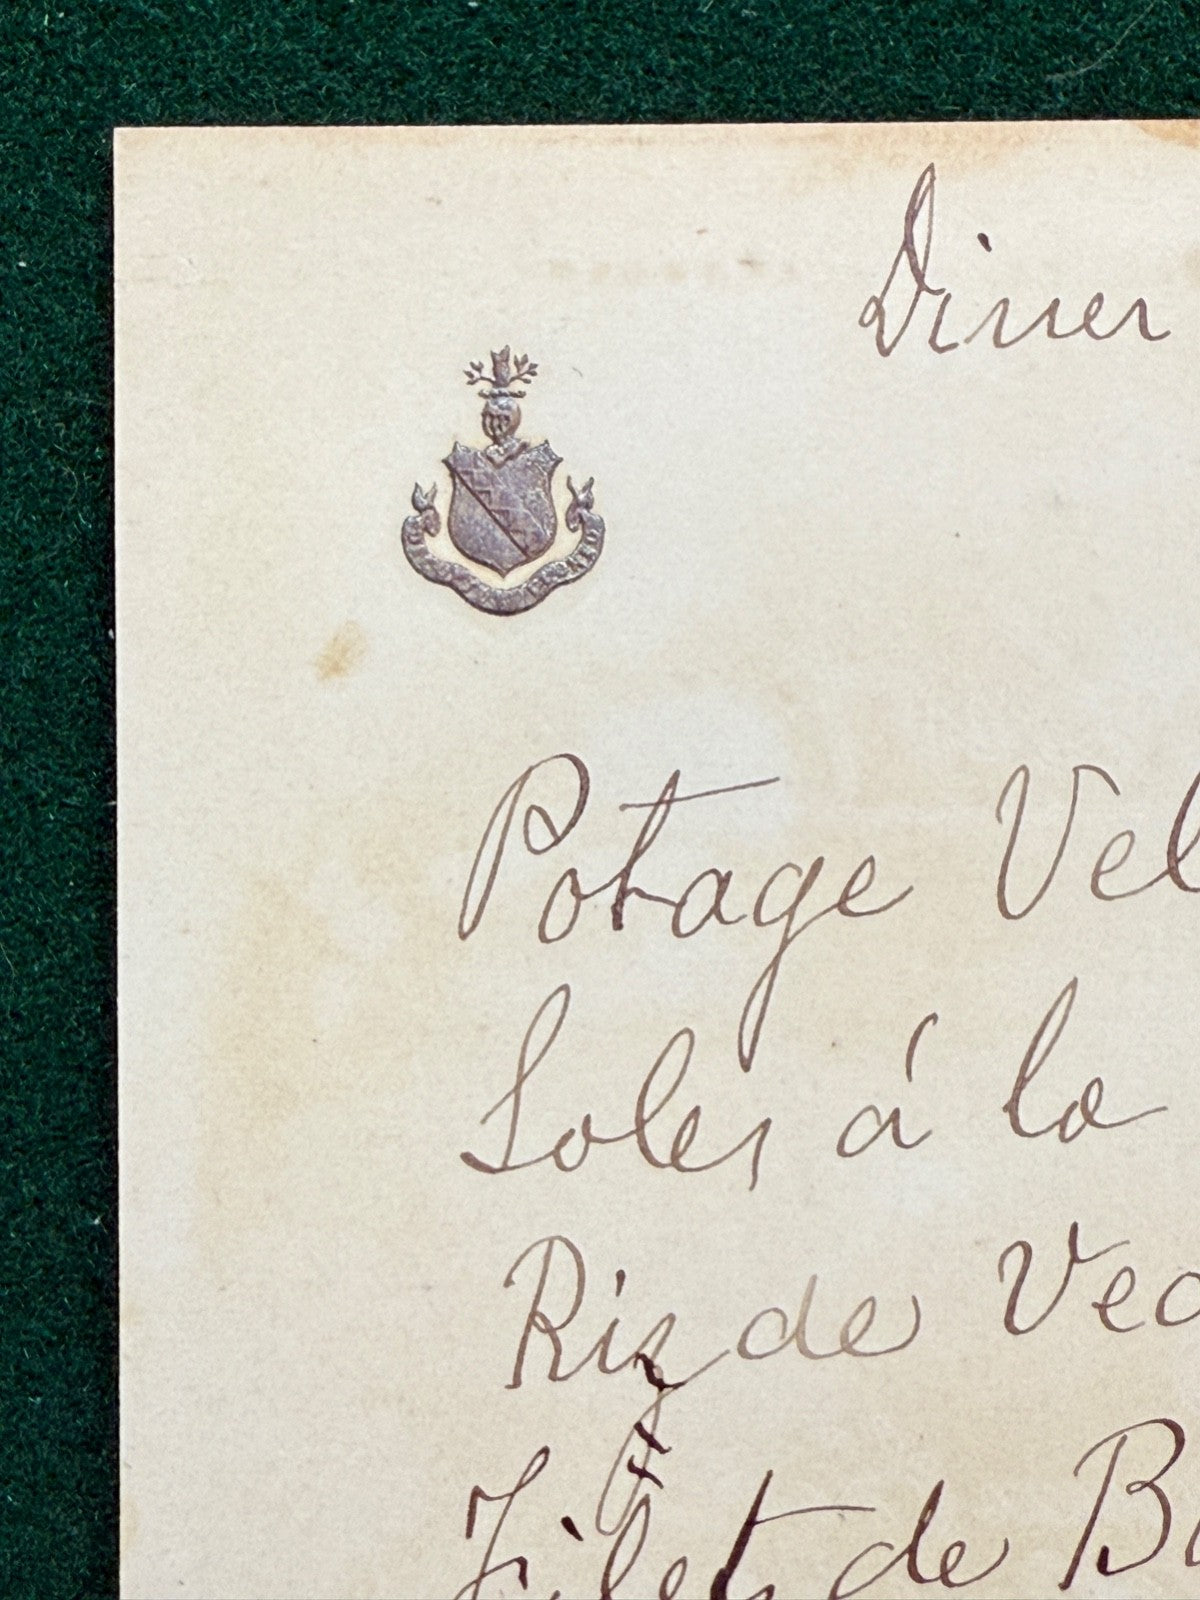 Diner
Potage Vel
Soles á la
Riz de Vea
Filets de B